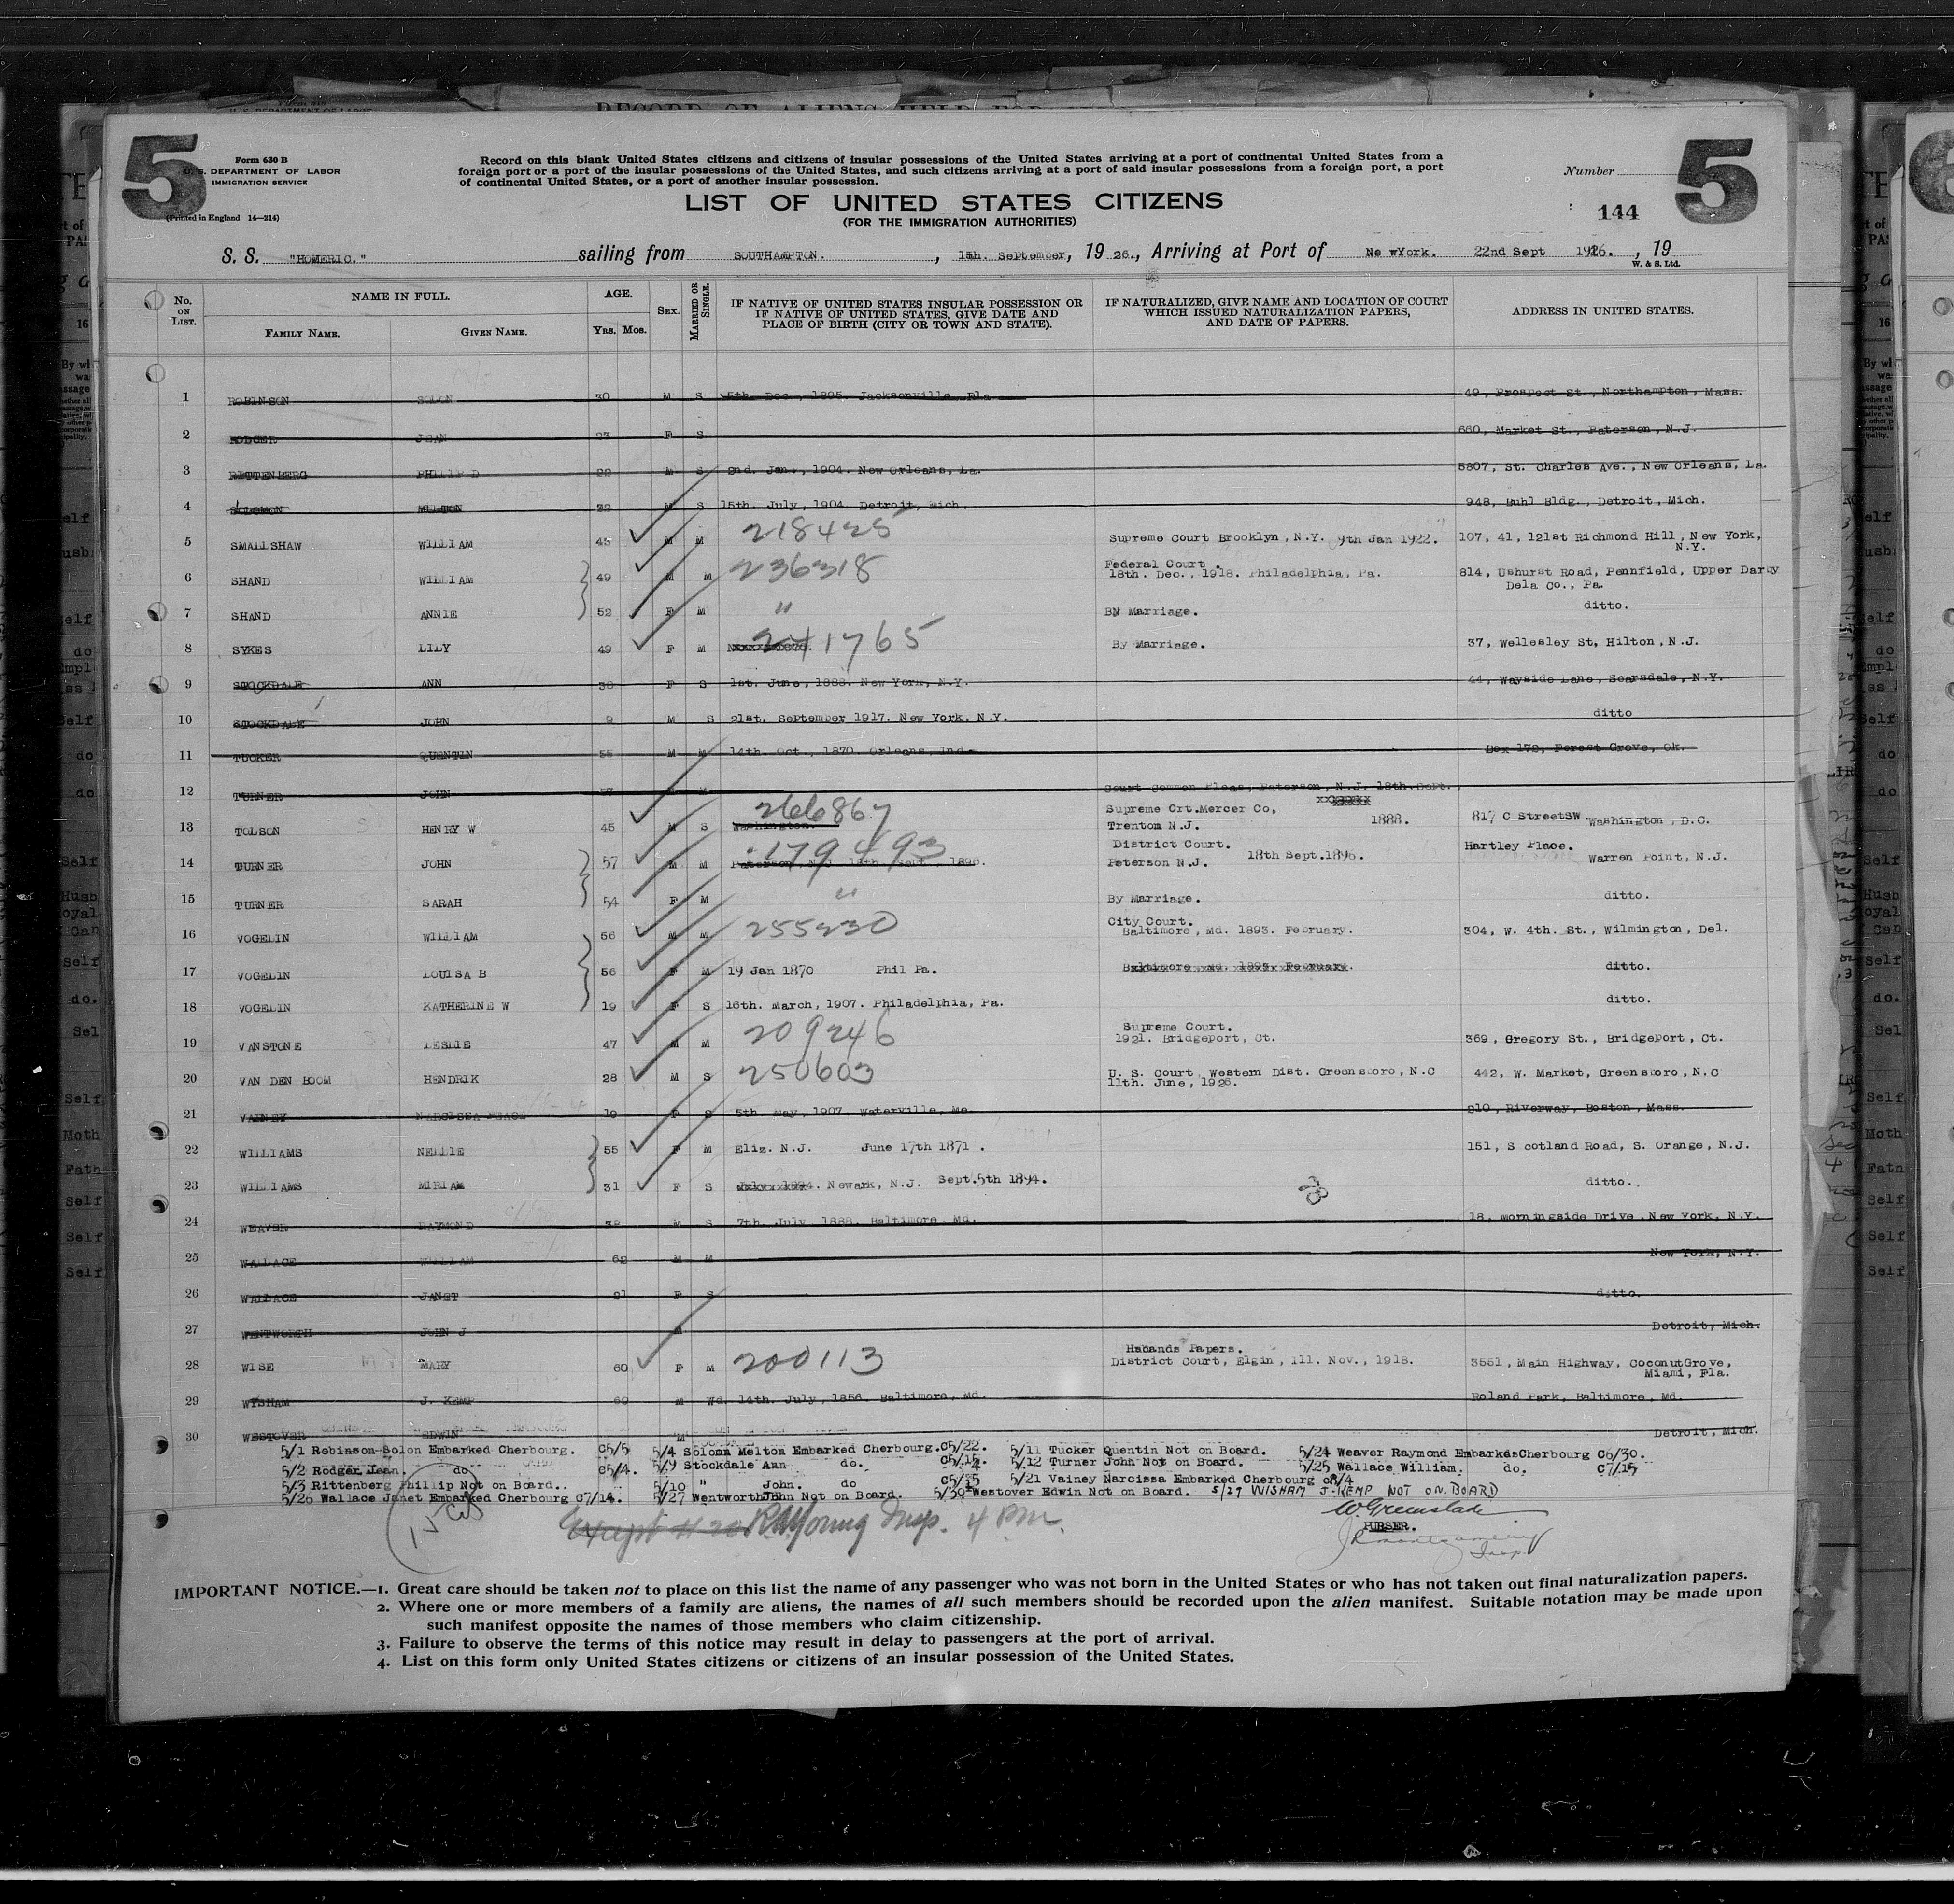 RECORD OF ALIENS HELD FOR
5
5
Form 630 B
U. S. DEPARTMENT OF LABOR
IMMIGRATION SERVICE
(Printed in England 14—214)
Record on this blank United States citizens and citizens of insular possessions of the United States arriving at a port of continental United States from a
foreign port or a port of the insular possessions of the United States, and such citizens arriving at a port of said insular possessions from a foreign port, a port
of continental United States, or a port of another insular possession.
Number
LIST OF UNITED STATES CITIZENS
(FOR THE IMMIGRATION AUTHORITIES)
144
S. S. "HOMERIC." sailing from SOUTHAMPTON. , September, 19 26., Arriving at Port of Ne wYork. 22nd Sept 1926. , 19
W. & S. Ltd.
No. ON LIST. NAME IN FULL. AGE. SEX. MARRIED OR SINGLE. IF NATIVE OF UNITED STATES INSULAR POSSESSION OR IF NATIVE OF UNITED STATES, GIVE DATE AND PLACE OF BIRTH (CITY OR TOWN AND STATE). IF NATURALIZED, GIVE NAME AND LOCATION OF COURT WHICH ISSUED NATURALIZATION PAPERS, AND DATE OF PAPERS. ADDRESS IN UNITED STATES.
FAMILY NAME. GIVEN NAME. YRS. MOS.
1 ROBINSON SOLON 30 M S 5th Dec., 1895. Jacksonville, Fla 49, Prospect St., Northampton, Mass.
2 RODGER JEAN 23 F S 660, Market St., Paterson, N.J.
3 RITTENBERG PHILIP D 22 M S 2nd. Jan., 1904. New Orleans, La. 5807, St. Charles Ave., New Orleans, La.
4 SOLOMON MELTON 22 M S 15th. July, 1904. Detroit, Mich. 948, Buhl Bldg., Detroit, Mich.
5 SMALLSHAW WILLIAM 45 M M 218425 Supreme Court Brooklyn, N.Y. 9th Jan 1922. 107, 41, 121st Richmond Hill, New York,
N.Y.
6 SHAND WILLIAM 49 M M 236318 Federal Court.
18th. Dec., 1918. Philadelphia, Pa. 814, Ushurst Road, Pennfield, Upper Darby
Dela Co., Pa.
7 SHAND ANNIE 52 F M " By Marriage. ditto.
8 SYKES LILY 49 F M 241765 By Marriage. 37, Wellesley St, Hilton, N.J.
9 STOCKDALE ANN 38 F S 1st. June, 1888. New York, N.Y. 44, Wayside Lane, Scarsdale, N.Y.
10 STOCKDALE JOHN 9 M S 21st. September 1917. New York, N.Y. ditto
11 TUCKER QUENTIN 55 M M 14th. Oct., 1870. Orleans, Ind. Box 178, Forest Grove, Ok.
12 TURNER JOHN 57 M M Court Common Pleas, Paterson, N.J. 18th.Sept.
13 TOLSON HENRY W 45 M S 266867 Washington. Supreme Crt.Mercer Co,
Trenton N.J. 1888. 817 C StreetSW Washington, D.C.
14 TURNER JOHN 57 M M 179493 Paterson, N.J. 18th. Sept., 1896. District Court.
Peterson N.J. 18th Sept.1896. Hartley Place.
Warren Point, N.J.
15 TURNER SARAH 54 F M " By Marriage. ditto.
16 VOGELIN WILLIAM 56 M M 255230 City Court.
Baltimore, Md. 1893. February. 304, W. 4th. St., Wilmington, Del.
17 VOGELIN LOUISA B 56 F M 19 Jan 1870 Phil Pa. Baltimore Md. 1893. February. ditto.
18 VOGELIN KATHERINE W 19 F S 16th. March, 1907. Philadelphia, Pa. ditto.
19 VANSTONE LESLIE 47 M M 209246 Supreme Court.
1921. Bridgeport, Ct. 369, Gregory St., Bridgeport, Ct.
20 VAN DEN BOOM HENDRIK 28 M S 250603 U. S. Court, Western Dist. Greensboro, N.C
11th. June, 1926. 442, W. Market, Greensboro, N.C
21 VAINEY NARCISSA PEACE 19 F S 5th. May, 1907. Waterville, Me. 810, Riverway, Boston, Mass.
22 WILLIAMS NELLIE 55 F M Eliz. N.J. June 17th 1871. 151, S cotland Road, S. Orange, N.J.
23 WILLIAMS MIRIAM 31 F S Newark, N.J. Sept.5th 1894. ditto.
24 WEAVER RAYMOND 38 M S 7th. July, 1888. Baltimore, Md. 18, Morningside Drive, New York, N.Y.
25 WALLACE WILLIAM 62 M M New York, N.Y.
26 WALLACE JANET 21 F S ditto.
27 WENTWORTH JOHN J M Detroit, Mich.
28 WISE MARY 60 F M 200113 Husbands Papers.
District Court, Elgin, Ill. Nov., 1918. 3551, Main Highway, CoconutGrove,
Miami, Fla.
29 WISHAM J. KEMP 69 M Wd. 14th. July, 1856. Baltimore, Md. Roland Park, Baltimore, Md.
30 WESTOVER EDWIN M Detroit, Mich.
5/1 Robinson Solon Embarked Cherbourg. C5/5 5/4 Solomn Melton Embarked Cherbourg. C5/22. 5/11 Tucker Quentin Not on Board. 5/24 Weaver Raymond Embarked Cherbourg C6/30.
5/2 Rodger Jean. do C5/4. 5/9 Stockdale Ann do. 5/12 Turner John Not on Board. 5/25 Wallace William. do. C7/15
5/3 Rittenberg Phillip Not on Board.. 5/10 " John. do 5/21 Vainey Narcissa Embarked Cherbourg c8/4
5/26 Wallace Janet Embarked Cherbourg C7/14. 5/27 Wentworth John Not on Board. 5/30 Westover Edwin Not on Board. 5/29 WISHAM J. KEMP NOT ON BOARD
Except #20 RA Young Insp. 4 P.M. W. Greenslade
PURSER.
IMPORTANT NOTICE.—1. Great care should be taken not to place on this list the name of any passenger who was not born in the United States or who has not taken out final naturalization papers.
2. Where one or more members of a family are aliens, the names of all such members should be recorded upon the alien manifest. Suitable notation may be made upon
such manifest opposite the names of those members who claim citizenship.
3. Failure to observe the terms of this notice may result in delay to passengers at the port of arrival.
4. List on this form only United States citizens or citizens of an insular possession of the United States.